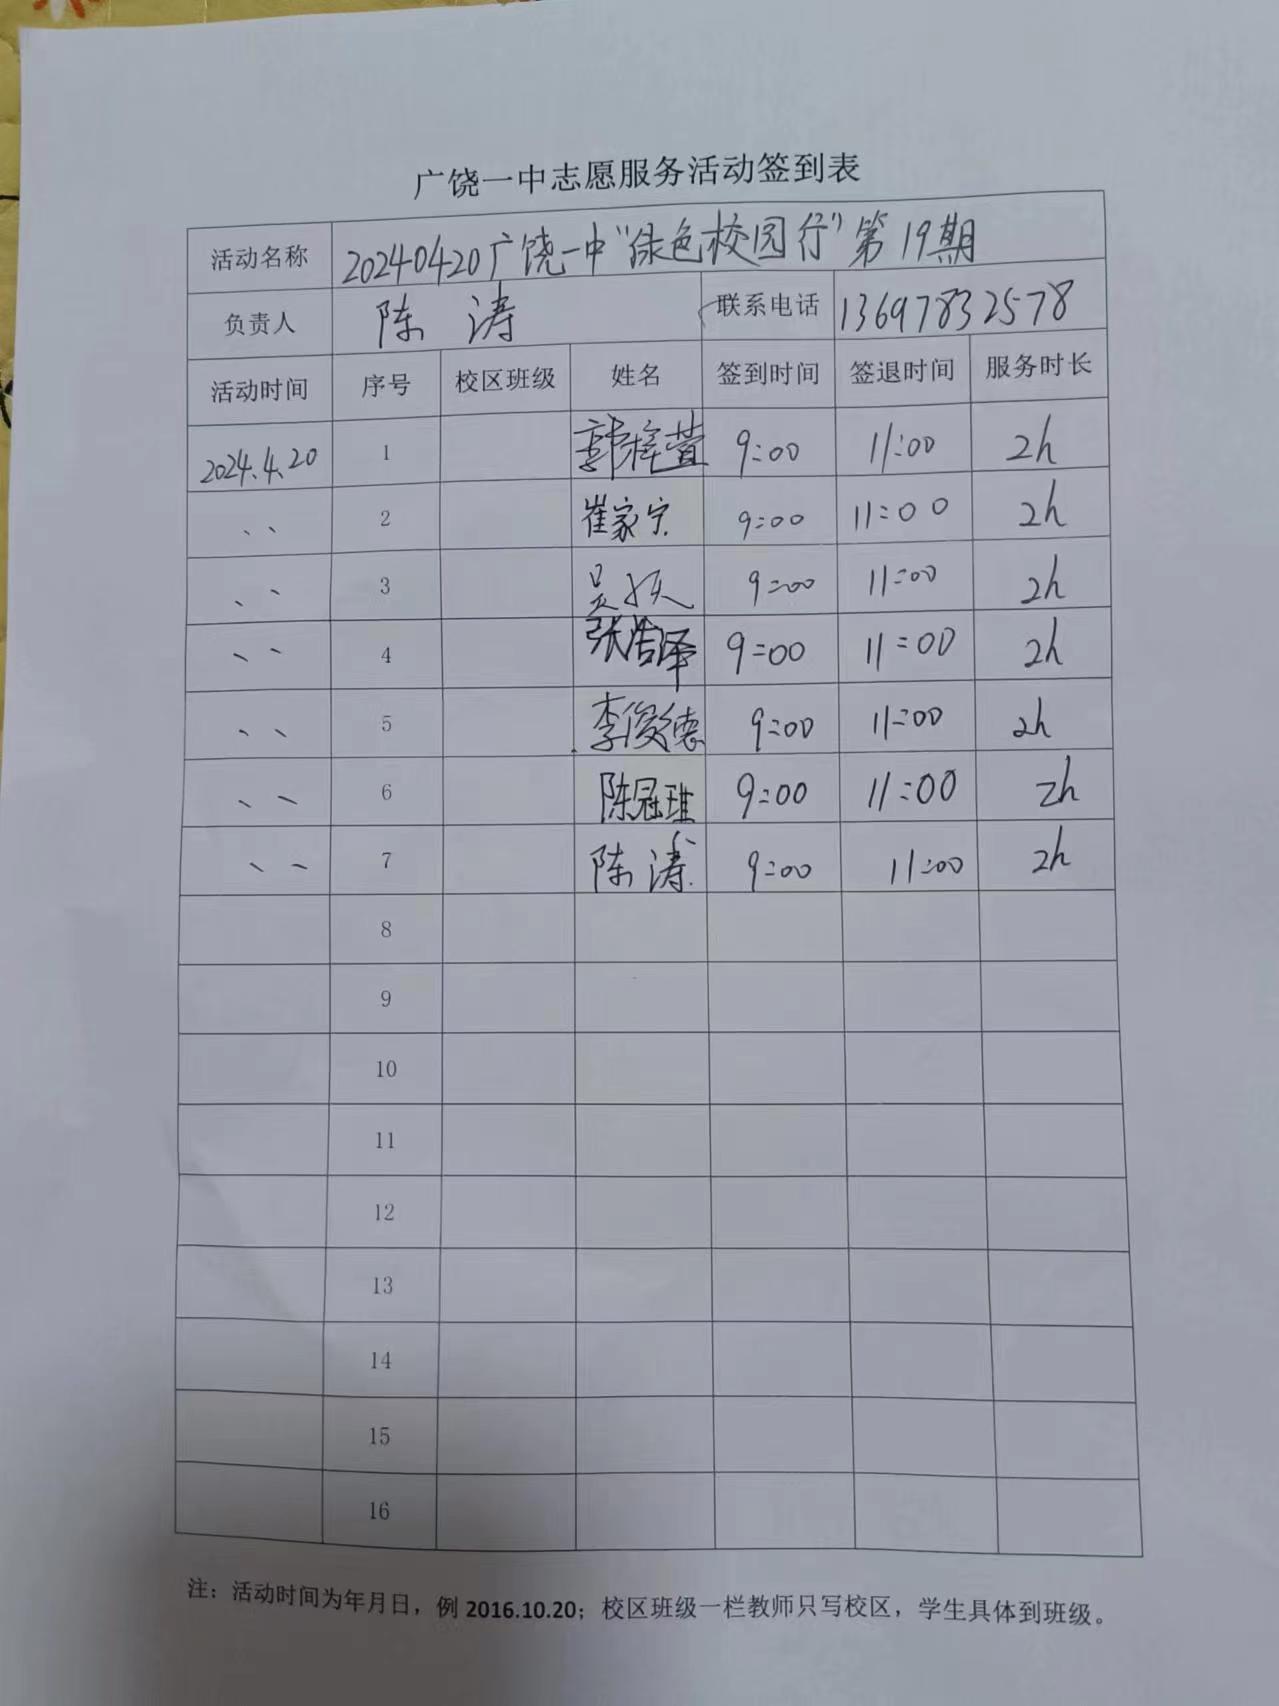 广饶一中志愿服务活动签到表
活动名称 20240420广饶一中“绿色校园行”第19期
负责人 陈涛 联系电话 13697832578
活动时间 序号 校区班级 姓名 签到时间 签退时间 服务时长
2024.4.20 1 郭梓萱 9:00 11:00 2h
、、 2 崔家宁 9:00 11:00 2h
、、 3 吴 9:00 11:00 2h
、、 4 张浩泽 9:00 11:00 2h
、、 5 李俊德 9:00 11:00 2h
、、 6 陈冠琟 9:00 11:00 2h
、、 7 陈涛 9:00 11:00 2h
8
9
10
11
12
13
14
15
16
注：活动时间为年月日，例 2016.10.20；校区班级一栏教师只写校区，学生具体到班级。